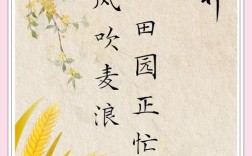 风吹麦浪
田园正忙